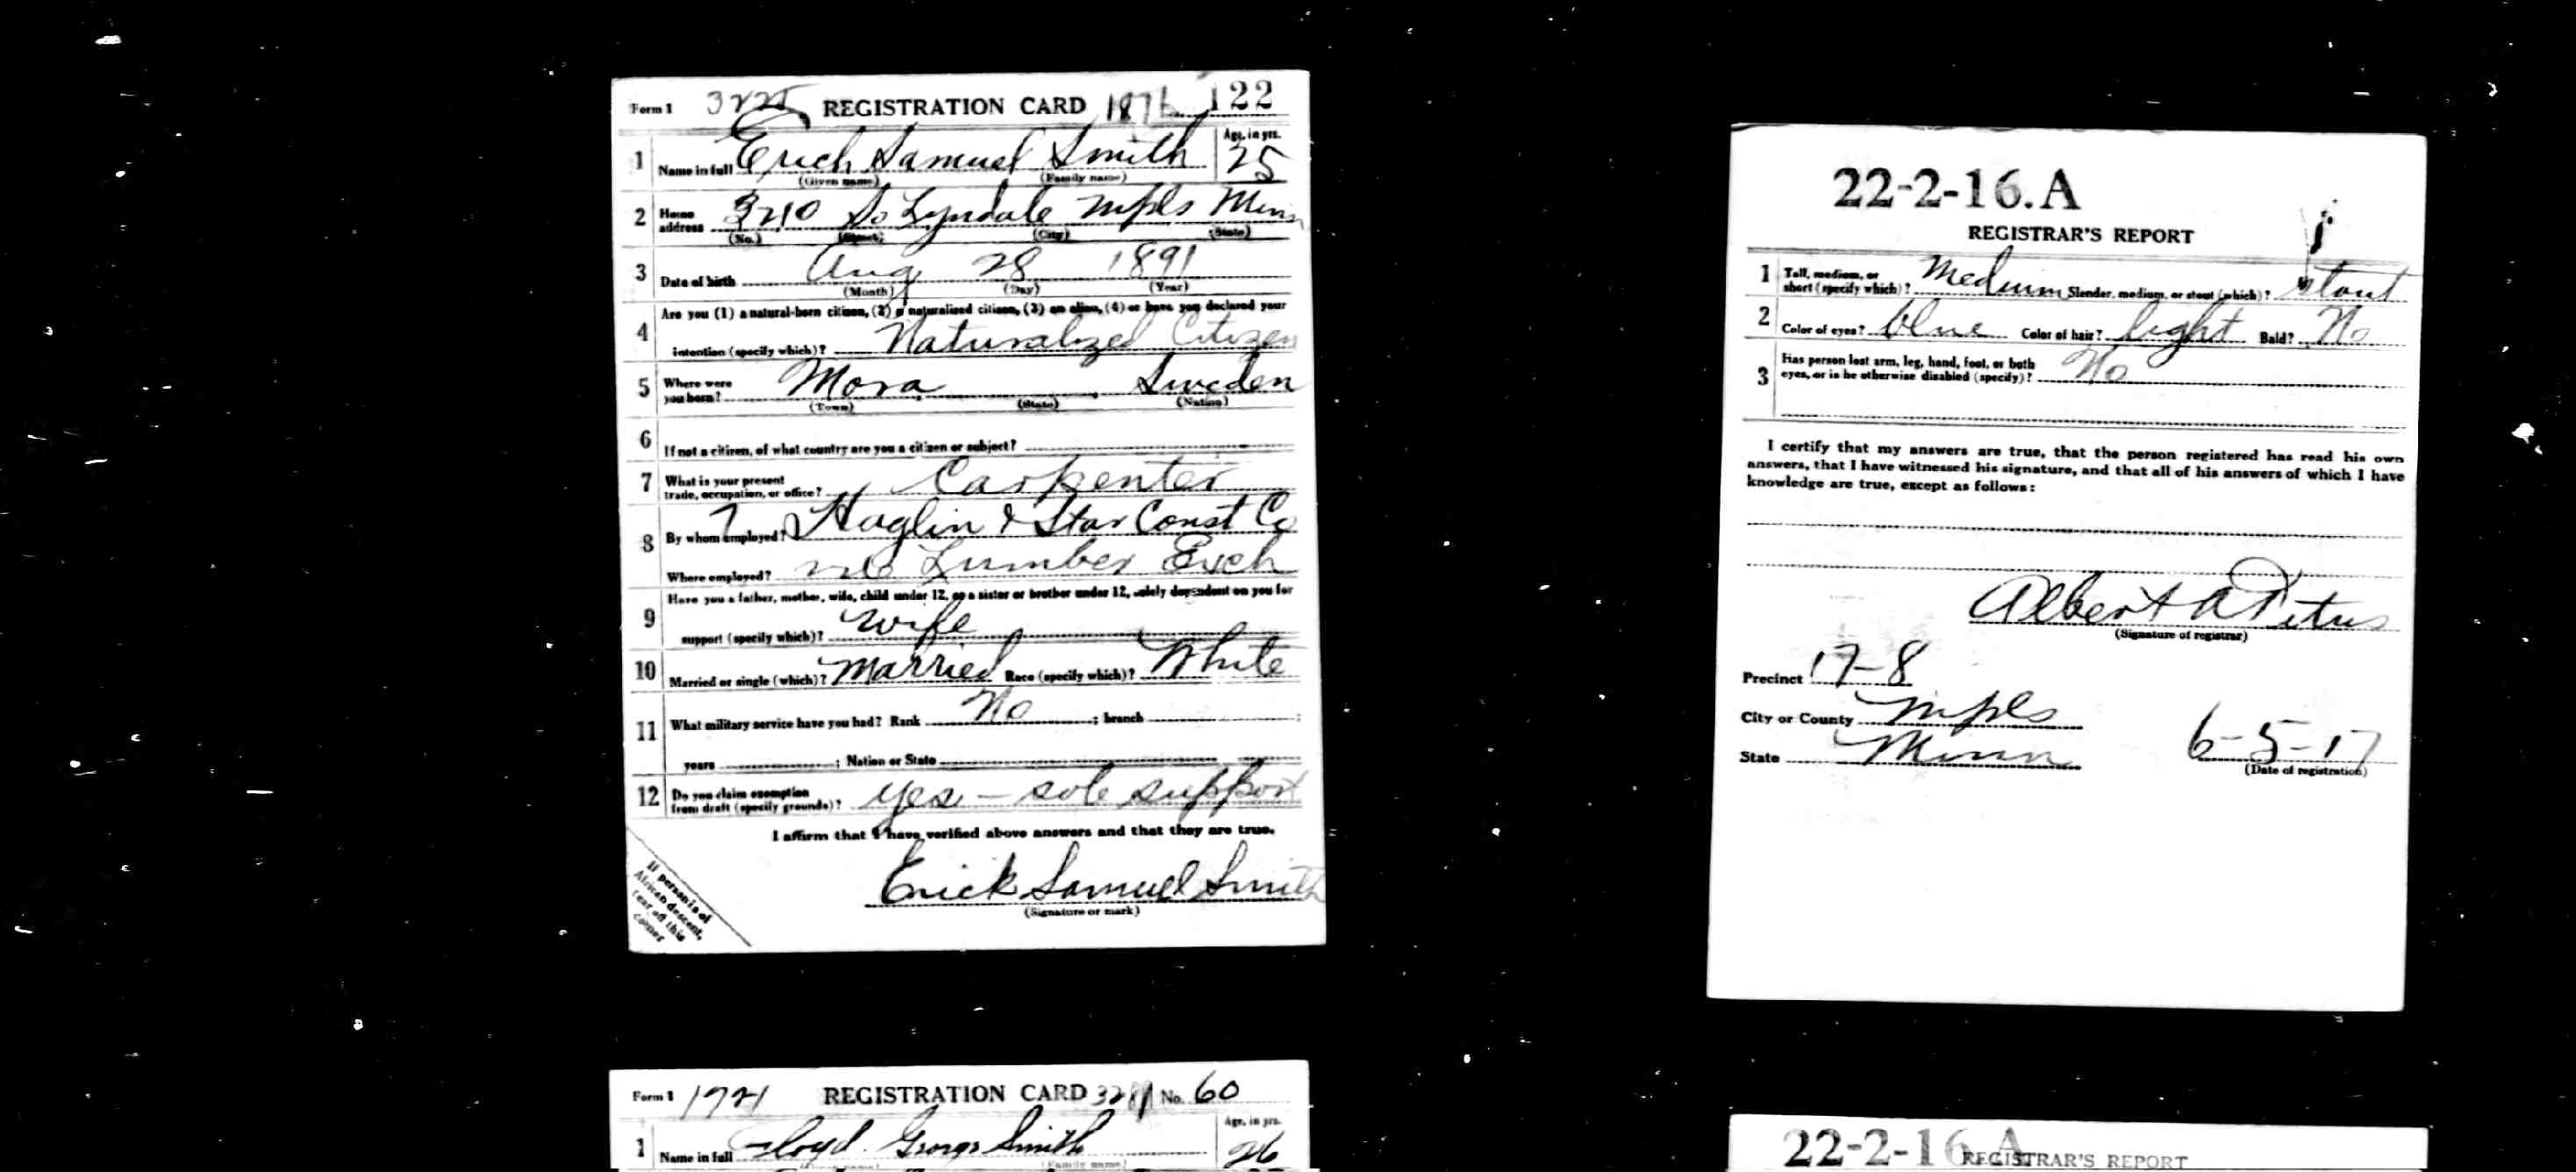 Form 1 REGISTRATION CARD 122
1 Name in full Erich Samuel Smith Age, in yrs. 25
(Given name) (Family name)
2 Home address 3210 So Lyndale Mpls Minn
(No.) (Street) (City) (State)
3 Date of birth Aug 28 1891
(Month) (Day) (Year)
4 Are you (1) a natural-born citizen, (2) a naturalized citizen, (3) an alien, (4) or have you declared your
intention (specify which)? Naturalized Citizen
5 Where were you born? Mora Sweden
(Town) (State) (Nation)
6 If not a citizen, of what country are you a citizen or subject?
7 What is your present trade, occupation, or office? Carpenter
8 By whom employed? Haglin & Star Const Co
Where employed? Lumber Exch
9 Have you a father, mother, wife, child under 12, or a sister or brother under 12, solely dependent on you for
support (specify which)? Wife
10 Married or single (which)? Married Race (specify which)? White
11 What military service have you had? Rank No ; branch ;
years ; Nation or State
12 Do you claim exemption from draft (specify grounds)? yes - sole support
I affirm that I have verified above answers and that they are true.
Erick Samuel Smith
(Signature or mark)
If person is of
African descent,
tear off this
corner
22-2-16.A
REGISTRAR'S REPORT
1 Tall, medium, or short (specify which)? Medium Slender, medium, or stout (which)? Stout
2 Color of eyes? blue Color of hair? light Bald? No
3 Has person lost arm, leg, hand, foot, or both
eyes, or is he otherwise disabled (specify)? No
I certify that my answers are true, that the person registered has read his own
answers, that I have witnessed his signature, and that all of his answers of which I have
knowledge are true, except as follows:
Albert A Titus
(Signature of registrar)
Precinct 17-8
City or County Mpls
State Minn 6-5-17
(Date of registration)
Form 1 1721 REGISTRATION CARD No. 60
1 Name in full Floyd George Smith Age, in yrs. 26
(Family name)
22-2-16.A
REGISTRAR'S REPORT